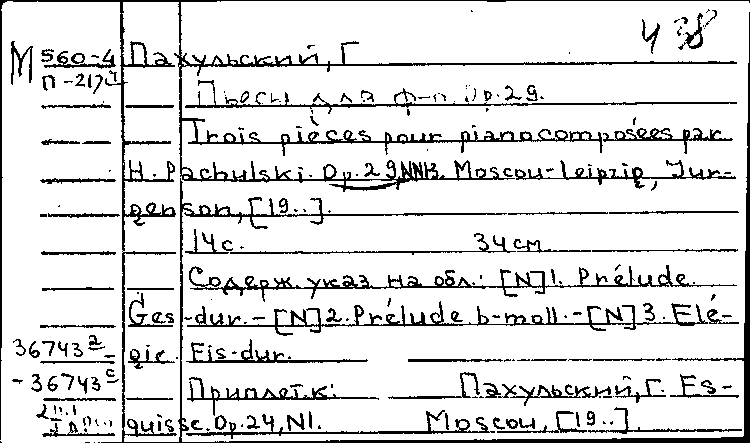 438
М 560-4 Пахульский, Г
П-217
Пьесы для ф-п. Op.29.
Trois pièces pour piano composées par
H. Pachulski. Op.29, NN1-3. Moscou-Leipzig, Jur-
genson, [19..].
14 с. 34 см
Содерж. указ. на обл.: [N]1. Prélude.
Ges-dur.-[N]2. Prélude b-moll.-[N]3. Elé-
36743а gie. Fis-dur.
-36743с Приплет. к: Пахульский, Г. Es-
quisse. Op.24, N1. Moscou, [19..].